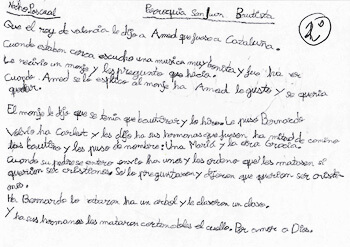 Nacho Pascual Parroquia San Juan Bautista
2º
Que el rey de valencia le dijo a Amed que fuese a Cataluña.
Cuando estaban cerca escucho una musica muy bonita y fue ha ver
Le recivio un monje y les pregunto que hacia.
Cuando Amed se lo explico al monje ha Amed le gusto y se queria
quedar.
El monje le dijo que se tenia que bautizar y lo hizo. Le puso Bernardo
Volvio ha Carlet y les dijo ha sus hermanas que fuesen ha mitad de camino
las bautizo y les puso de nombre: Una María y la otra Gracia.
Cuando su padre se entero envio ha unos y les ordeno que les matasen si
querian ser cristianos. Se lo preguntaron y dijeron que querian ser cristia-
nos.
Ha Bernardo lo ataron ha un arbol y le clavaron un clavo.
Y ha sus hermanas las mataron cortandoles el cuello. Por amor a Dios.